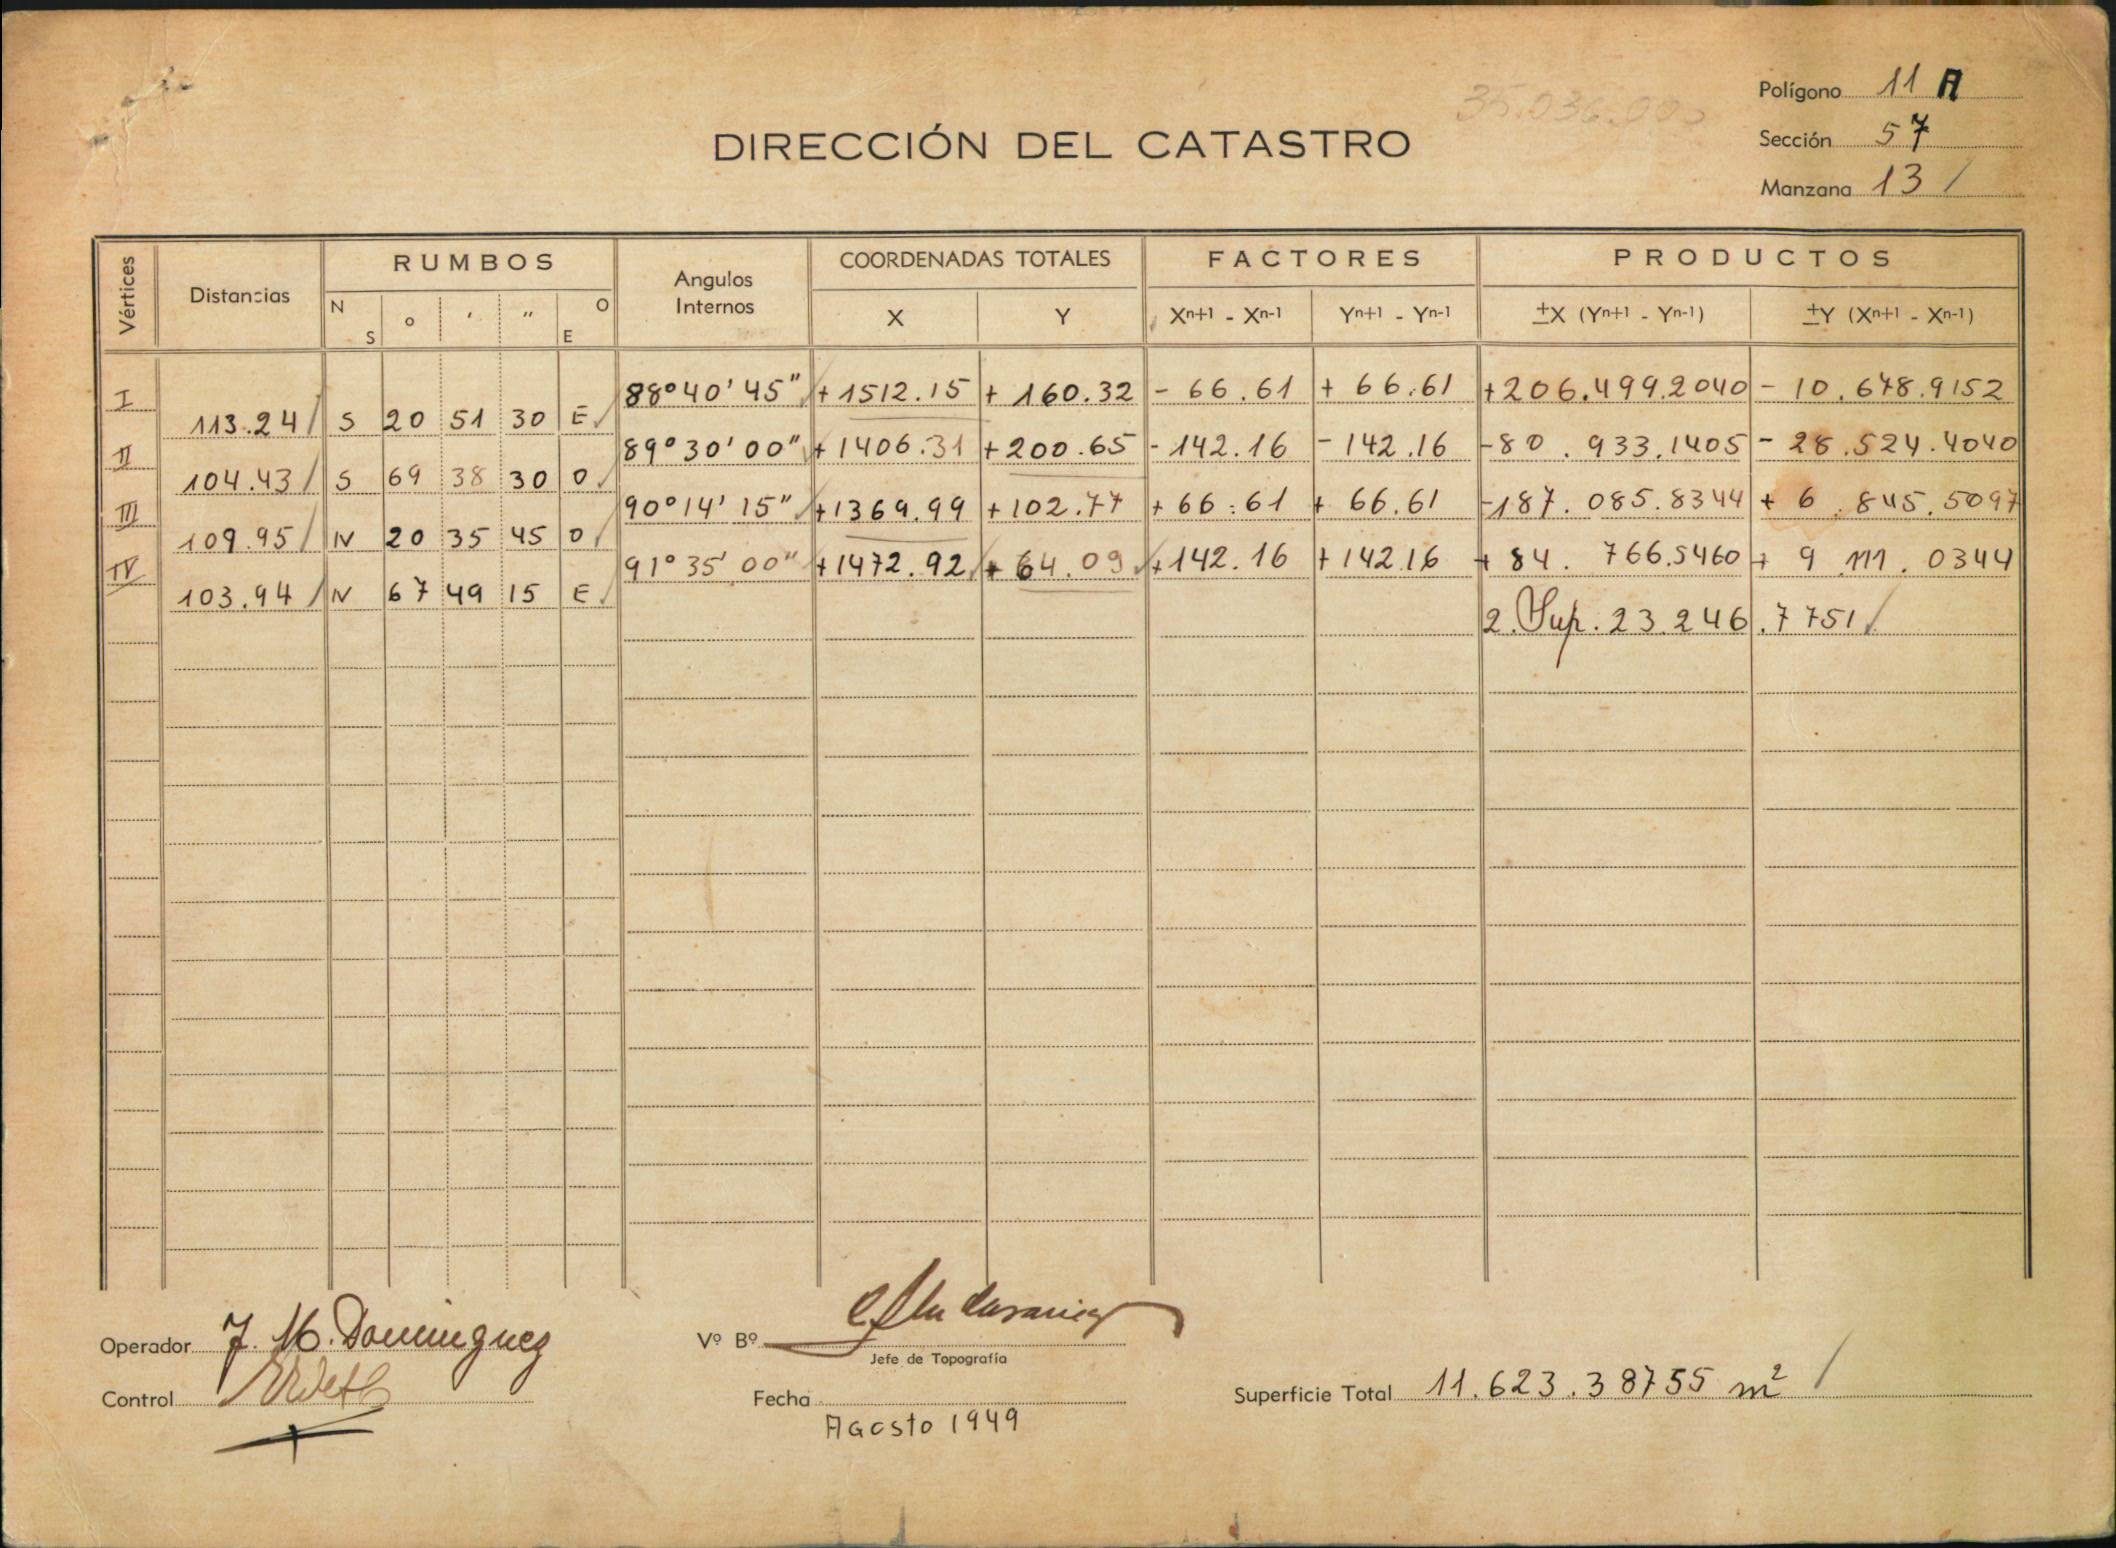 35.036.00
Polígono 11 A
DIRECCIÓN DEL CATASTRO
Sección 57
Manzana 13 /
Vértices Distancias RUMBOS Angulos Internos COORDENADAS TOTALES FACTORES PRODUCTOS
N S ° ' " O E X Y Xn+1 - Xn-1 Yn+1 - Yn-1 ±X (Yn+1 - Yn-1) ±Y (Xn+1 - Xn-1)
I 88°40'45" + 1512.15 + 160.32 - 66.61 + 66.61 +206.499.2040 - 10.678.9152
113.24 S 20 51 30 E
II 89°30'00" + 1406.31 + 200.65 - 142.16 - 142.16 -80.933.1405 - 28.524.4040
104.43 S 69 38 30 O
III 90°14'15" +1369.99 + 102.77 + 66.61 + 66.61 -187.085.8344 + 6.845.5097
109.95 N 20 35 45 O
IV 91°35'00" +1472.92 + 64.09 +142.16 +142.16 + 84.766.5460 + 9.111.0344
103.94 N 67 49 15 E
2.Sup. 23.246.7751
Operador J. M. Dominguez
Vº Bº
Jefe de Topografía
Control
Fecha
Agosto 1949
Superficie Total 11.623.38755 m²